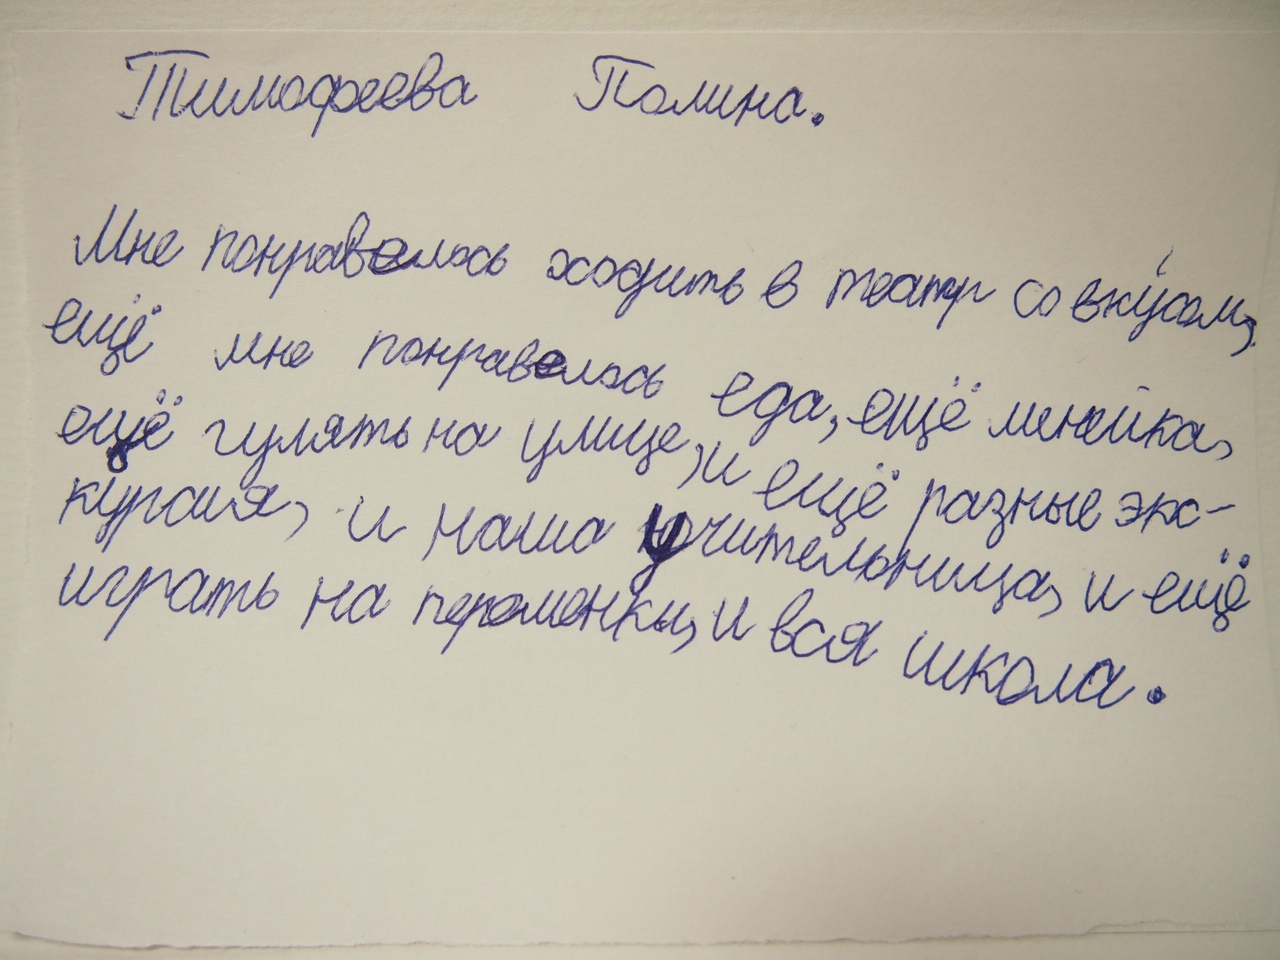 Тимофеева Полина.
Мне понравелось ходить в театр со вку́сом,
ещё мне понравелось еда, ещё линейка,
ещё гулять на улице, и ещё разные экс-
курсия, и наша учительница, и ещё
играть на переменки, и вся школа.